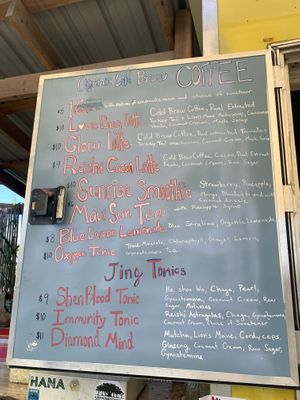 Organic Cold Brew COFFEE
$10 Love Bug latte
Cold Brew Coffee, Dual Extracted
Turkey Tail & Lions Mane Mushrooms, Coconut
Cream, Maple Syrup
$10 Glow latte
Cold Brew Coffee, Dual extracted Tremella
Turkey Tail mushrooms, Coconut Cream, Maple
$9 Reishi Cacao Latte
Cold Brew Coffee, Cacao, Dual Extract
Reishi, Coconut Cream, Raw Sugar
$10 Sunrise Smoothie
Strawberry, Pineapple,
Mango
Coconut
Maui Sun Tea
with Pineapple Syrup
$8 Blue Lagoon Lemonade
Blue Spirulina, Organic Lemonade
$10 Oxygen Tonic
Trace Minerals, Chlorophyll, Ginger, Lemon,
Gynostemma Tea
Jing Tonics
$9 Shen Blood Tonic
He shou Wu, Chaga, Pearl,
Gynostemma, Coconut Cream, Raw
Sugar, Molasses
$10 Immunity Tonic
Reishi Astragalus, Chaga, Gynostemma
Coconut Cream, Choice of Sweetener
$11 Diamond Mind
Matcha, Lion's Mane, Cordyceps,
Ginseng, Coconut Cream, Raw Sugar,
Gynostemma
HANA